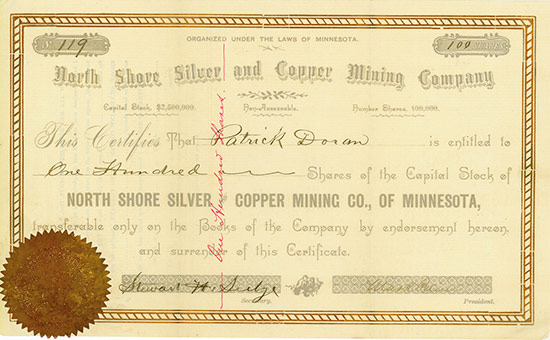 ORGANIZED UNDER THE LAWS OF MINNESOTA.
No. 119
100 SHARES
North Shore Silver and Copper Mining Company
Capital Stock, $2,500,000.
Non-Assessable.
Number Shares, 100,000.
This Certifies That Patrick Doran is entitled to
One Hundred Shares of the Capital Stock of
NORTH SHORE SILVER AND COPPER MINING CO., OF MINNESOTA,
transferable only on the Books of the Company by endorsement hereon
and surrender of this Certificate.
One Hundred Shares
Stewart H.
Secretary.
President.